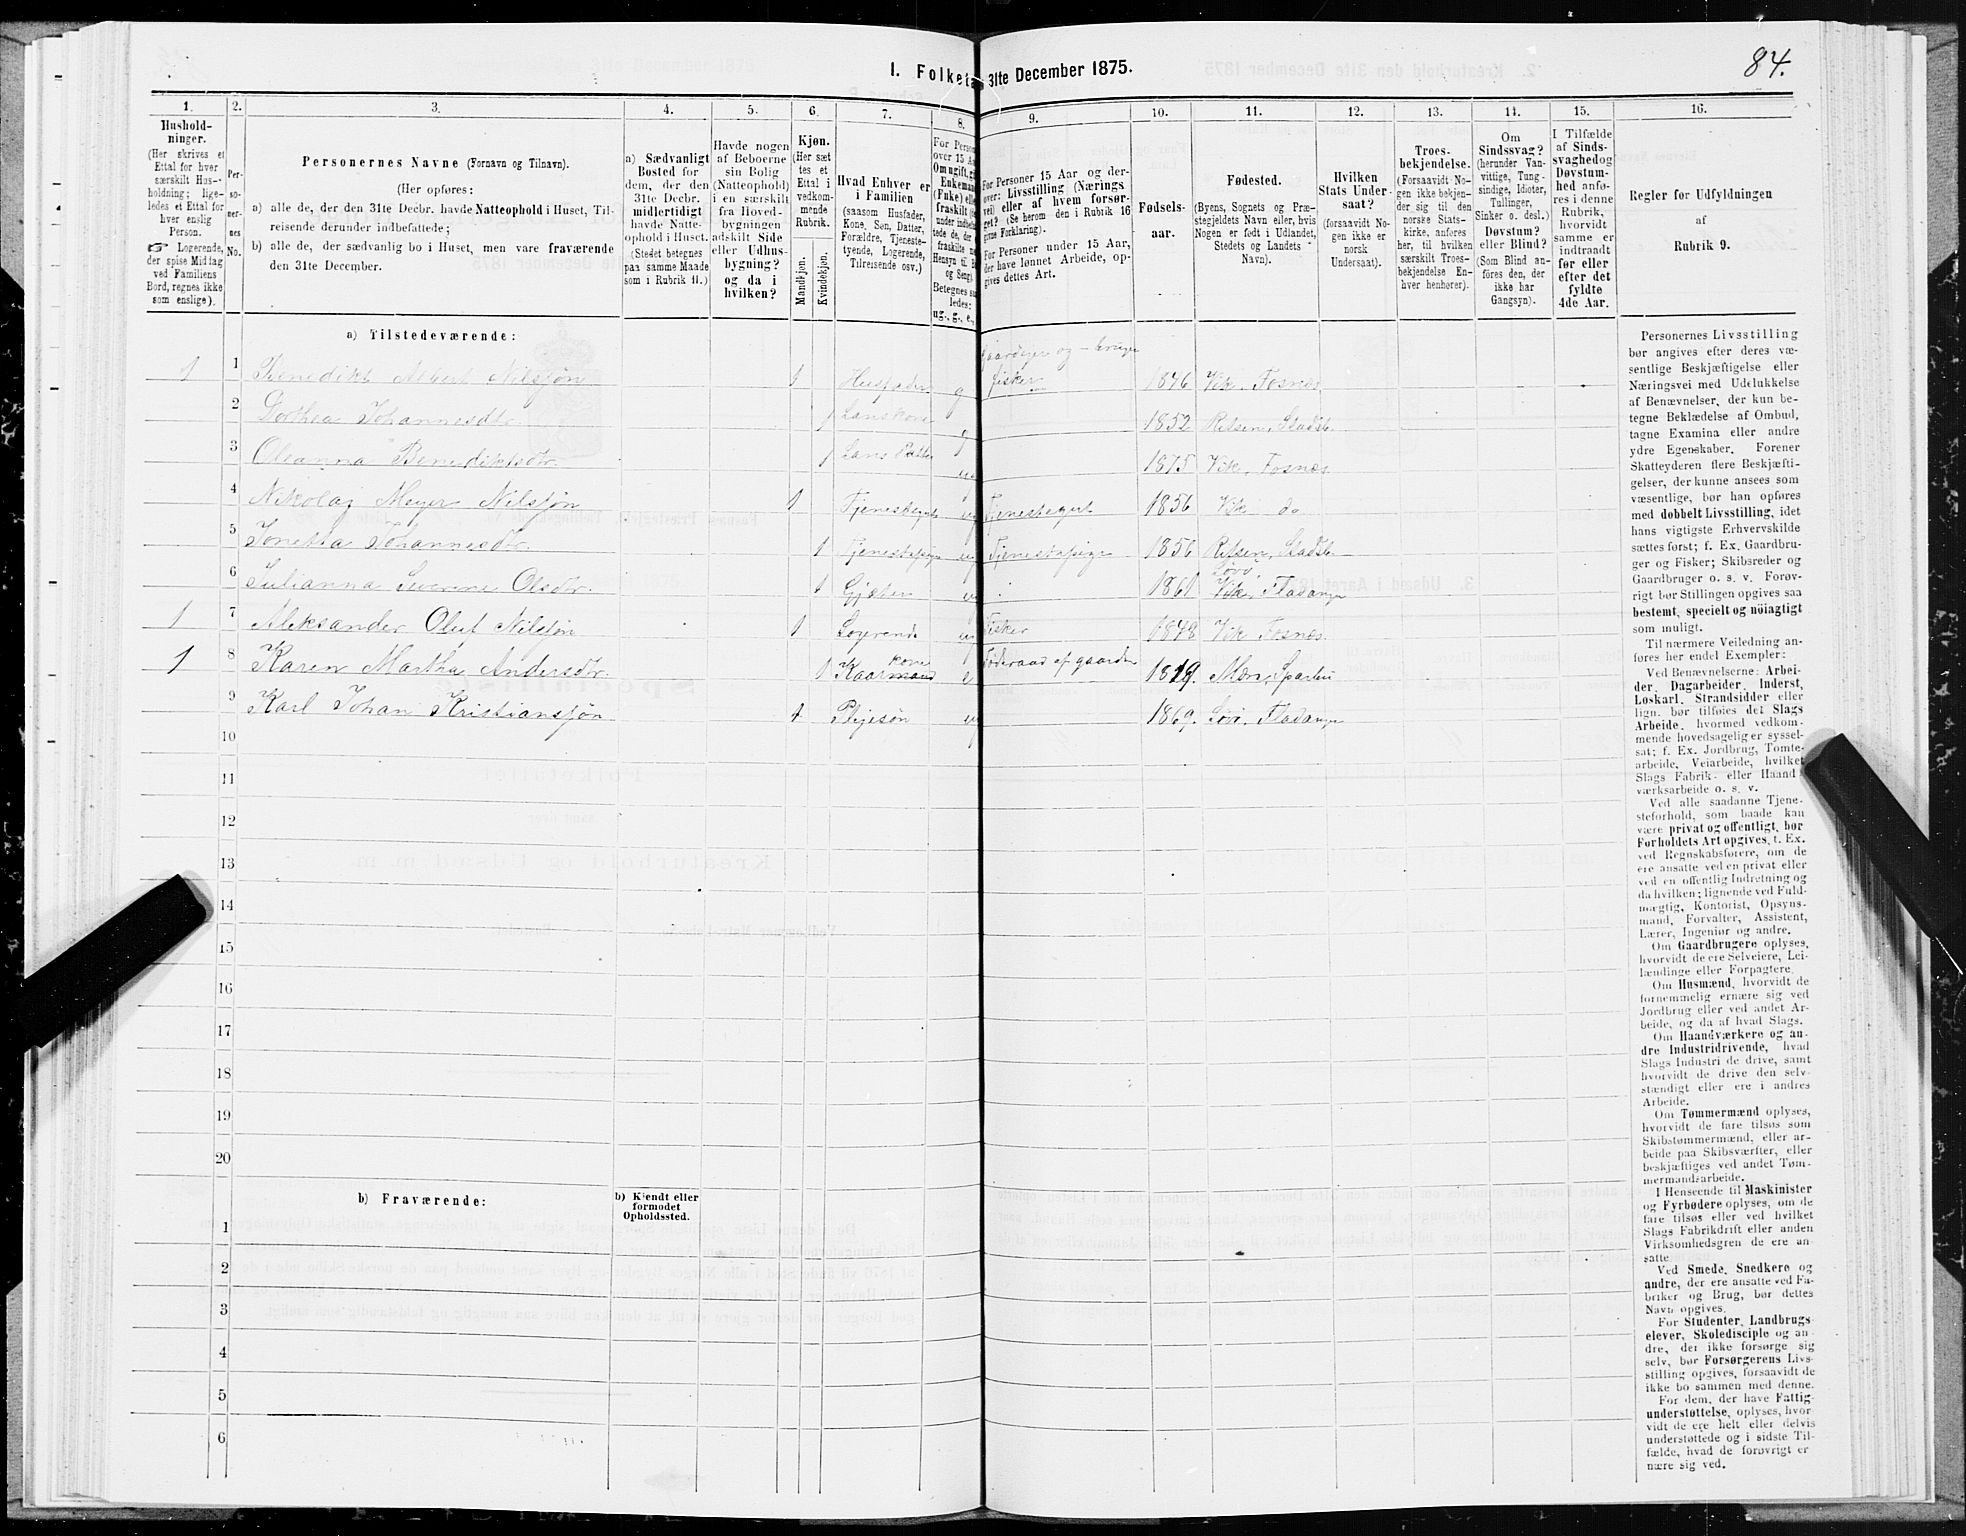 84.
I. Folketa 31te December 1875.
1. 2. 3. 4. 5. 6. 7. 8. 9. 10. 11. 12. 13. 14. 15. 16.
Hushold-
ninger.
(Her skrives et
Ettal for hver
særskilt Hus-
holdning; lige-
ledes et Ettal for
hver enslig
Person.
☞ Logerende,
der spise Middag
ved Familiens
Bord, regnes ikke
som enslige).
Per-
so-
ner-
nes
No.
Personernes Navne (Fornavn og Tilnavn).
(Her opføres:
a) alle de, der den 31te Decbr. havde Natteophold i Huset, Til-
reisende derunder indbefattede;
b) alle de, der sædvanlig bo i Huset, men vare fraværende
den 31te December.
a) Sædvanligt
Bosted for
dem, der den
31te Decbr.
midlertidigt
havde Natte-
ophold i Huset.
(Stedet betegnes
paa samme Maade
som i Rubrik 11.)
Havde nogen
af Beboerne
sin Bolig
(Natteophold)
i en særskilt
fra Hoved-
bygningen
adskilt Side-
eller Udhus-
bygning?
og da i
hvilken?
Kjøn.
(Her sæt-
tes et
Ettal i
vedkom-
mende
Rubrik.
Mandkjøn.
Kvindekjøn.
Hvad Enhver er
i Familien
(saasom Husfader,
Kone, Søn, Datter,
Forældre, Tjeneste-
tyende, Logerende,
Tilreisende osv.)
For Person
over 15 Aa
Om ugift, gi
Enkemand
(Enke) elle
fraskilt (
under indbefat-
tede de, der
fraskilte
Hensyn til B
og Seng).
Betegnes s
ledes:
ug., g., e.,
For Personer 15 Aar og der-
over: Livsstilling (Nærings
vei) eller af hvem forsør-
get? (Se herom den i Rubrik 16
givne Forklaring).
For Personer under 15 Aar,
der have lønnet Arbeide, op-
gives dettes Art.
Fødsels-
aar.
Fødested.
(Byens, Sognets og Præ-
stegjeldets Navn eller, hvis
Nogen er født i Udlandet,
Stedets og Landets
Navn).
Hvilken
Stats Under-
saat?
(forsaavidt No-
gen ikke er
norsk
Undersaat).
Troes-
bekjendelse.
(Forsaavidt No-
gen ikke bekjen-
der sig til den
norske Stats-
kirke, anføres
her, til hvilken
særskilt Troes-
bekjendelse En-
hver henhører).
Om
Sindssvag?
(herunder Van-
vittige, Tung-
sindige, Idioter,
Tullinger,
Sinker o. desl.)
Døvstum?
eller Blind?
(Som Blind an-
føres den, der
ikke har
Gangsyn).
I Tilfælde
af Sinds-
svaghed og
Døvstum-
hed anfø-
res i denne
Rubrik,
hvorvidt
samme er
indtraadt
før eller
efter det
fyldte
4de Aar.
Regler for Udfyldningen
af
Rubrik 9.
a) Tilstedeværende:
Gaardeier og -bruger
1 1 Benedikt Albert Nilsføn 1 Husfader g fisker 1846 Vik, Fosnæs
2 Dorthea Johannesdtr. 1 Hans kone g 1852 Ritsen, Stadsb.
3 Oleanna Benediktsdtr. 1 Hans Datter ug 1875 Vik, Fosnæs.
4 Nikolaj Meyer Nilsføn 1 Tjenestegut ug Tjenestegut 1856 Vik do
5 Jonetta Johannesdtr. 1 Tjenestepige ug Tjenestepige 1856 Ritsen, Stadsb.
Løvø
6 Julianna Severine Olsdtr. 1 Gjæter ug 1861 Vik, Fladanger
1 7 Aleksander Oluf Nilsføn 1 Logerende ug Fisker 1848 Vik Fosnæs.
kone
1 8 Karen Martha Andersdtr. 1 Kaarmand e Føderaad af gaarden 1819. Mære, Sparbu
9 Karl Johan Kristiansføn 1 Plejesøn ug 1869. Løvø. Fladanger
10
11
12
13
14
15
16
17
18
19
20
b) Fraværende: b) Kjendt eller
formodet
Opholdssted.
1
2
3
4
5
6
Personernes Livsstilling
bør angives efter deres væ-
sentlige Beskjæftigelse eller
Næringsvei med Udelukkelse
af Benævnelser, der kun be-
tegne Beklædelse af Ombud,
tagne Examina eller andre
ydre Egenskaber. Forener
Skatteyderen flere Beskjæfti-
gelser, der kunne ansees som
væsentlige, bør han opføres
med dobbelt Livsstilling, idet
hans vigtigste Erhvervskilde
sættes først; f. Ex. Gaardbru-
ger og Fisker; Skibsreder og
Gaardbruger o. s. v. Forøv-
rigt bør Stillingen opgives saa
bestemt, specielt og nöiagtigt
som muligt.
Til nærmere Veiledning an-
føres her endel Exempler:
Ved Benævnelserne: Arbei-
der, Dagarbeider, Inderst,
Løskarl, Strandsidder eller
lign. bør tilføies det Slags
Arbeide, hvormed vedkom-
mende hovedsagelig er syssel-
sat; f. Ex. Jordbrug, Tomte-
arbeide, Veiarbeide, hvilket
Slags Fabrik- eller Haand-
værksarbeide o. s. v.
Ved alle saadanne Tjene-
steforhold, som baade kan
være privat og offentligt, bør
Forholdets Art opgives, t. Ex.
ved Regnskabsførere, om de
ere ansatte ved en privat eller
ved en offentlig Indretning og
da hvilken; lignende ved Fuld-
mægtig, Kontorist, Opsyns-
mand, Forvalter, Assistent,
Lærer, Ingeniør og andre.
Om Gaardbrugere oplyses,
hvorvidt de ere Selveiere, Lei-
lændinge eller Forpagtere.
Om Husmænd, hvorvidt de
fornemmelig ernære sig ved
Jordbrug eller ved andet Ar-
beide, og da af hvad Slags.
Om Haandværkere og an-
dre Industridrivende, hvad
Slags Industri de drive, samt
hvorvidt de drive den selv-
stændigt eller ere i andres
Arbeide.
Om Tømmermænd oplyses,
hvorvidt de fare tilsøs som
Skibstømmermænd, eller ar-
beide paa Skibsværfter, eller
beskjæftiges ved andet Tøm-
mermandsarbeide.
I Henseende til Maskinister
og Fyrbødere oplyses, om de
fare tilsøs eller ved hvilket
Slags Fabrikdrift eller anden
Virksomhedsgren de ere an-
satte.
Ved Smede, Snedkere og
andre, der ere ansatte ved Fa-
briker og Brug, bør dettes
Navn opgives.
For Studenter, Landbrugs-
elever, Skoledisciple og an-
dre, der ikke forsørge sig
selv, bør Forsørgerens Livs-
stilling opgives, forsaavidt de
ikke bo sammen med denne.
For dem, der have Fattig-
understøttelse, oplyses, hvor-
vidt de ere helt eller delvis
understøttede og i sidste Til-
fælde, hvad de forøvrigt er-
nære sig ved.